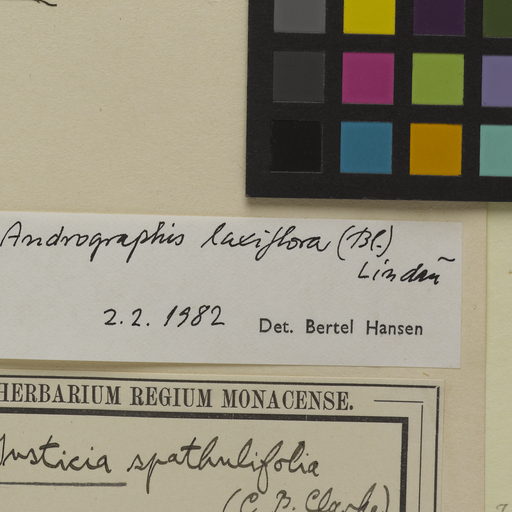 Andrographis laxiflora (Bl.)
Lindau
2.2.1982 Det. Bertel Hansen
HERBARIUM REGIUM MONACENSE.
Justicia spathulifolia
(C. B. Clarke)